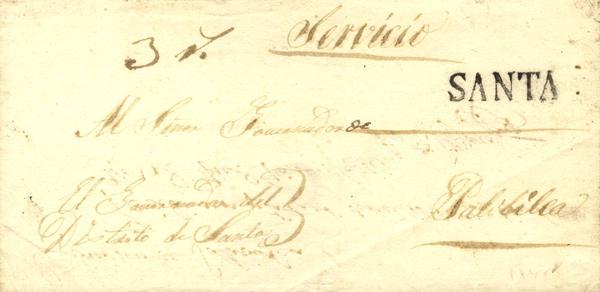 Servicio
3 r.
SANTA
Al Señor Governador de
El Governador del
Distrito de Santa
Patibilca